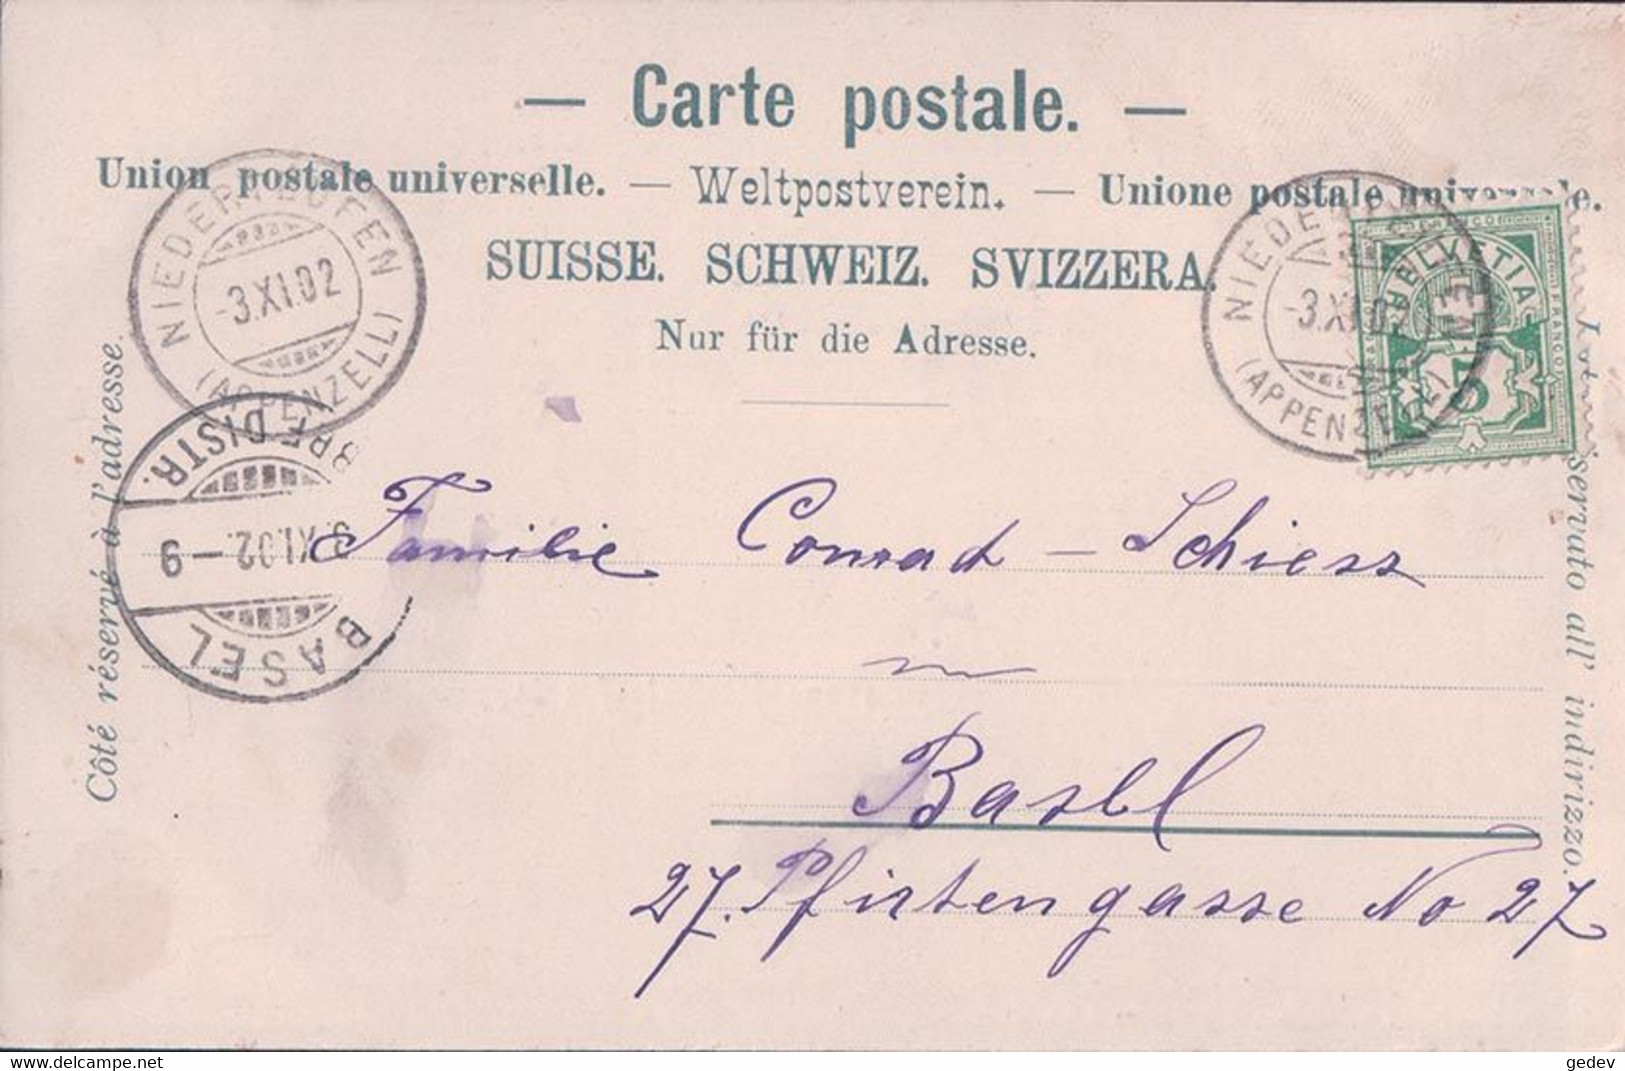 — Carte postale. —
Union postale universelle. — Weltpostverein. — Unione postale universale.
SUISSE. SCHWEIZ. SVIZZERA.
Nur für die Adresse.
Côté réservé à l'adresse.
NIEDERTEUFEN
-3.XI.02
(APPENZELL)
NIEDERTEUFEN
-3.XI.02
(APPENZELL)
HELVETIA
FRANCO
5
BASEL
3.XI.02.-9
BRF.DISTR.
Familie Conrad - Schiess
in
Basel
27. Pfirtengasse No 27
riservato all' indirizzo.
www.delcampe.net
gedev